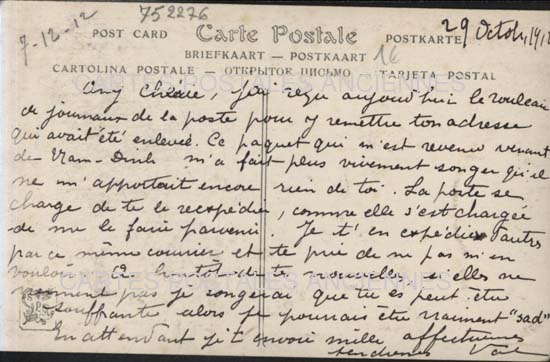 7-12-12
752276
29 Octobre 1912
POST CARD
Carte Postale
POSTKARTE
16
BRIEFKAART — POSTKAART
CARTOLINA POSTALE — ОТКРЫТОЕ ПИСЬМО — TARJETA POSTAL
CARTES POSTALES ANCIENNES
chérie, j'ai reçu aujourd'hui le rouleau
de journaux de la poste pour y remettre ton adresse
qui avait été enlevée. Ce paquet qui m'est revenu venant
de Nam-Dinh m'a fait plus vivement songer qu'il
ne m'apportait encore rien de toi. La poste se
charge de te le réexpédier, comme elle s'est chargée
de me le faire parvenir. Je t'en expédie d'autres
par ce même courrier et te prie de ne pas m'en
vouloir. A bientôt de tes nouvelles, si elles ne
viennent pas je songerai que tu es peut-être
souffrante alors je pourrais être vraiment "sad"
En attendant je t'envoie mille affectueuses
tendresses
CARTES POSTALES ANCIENNES